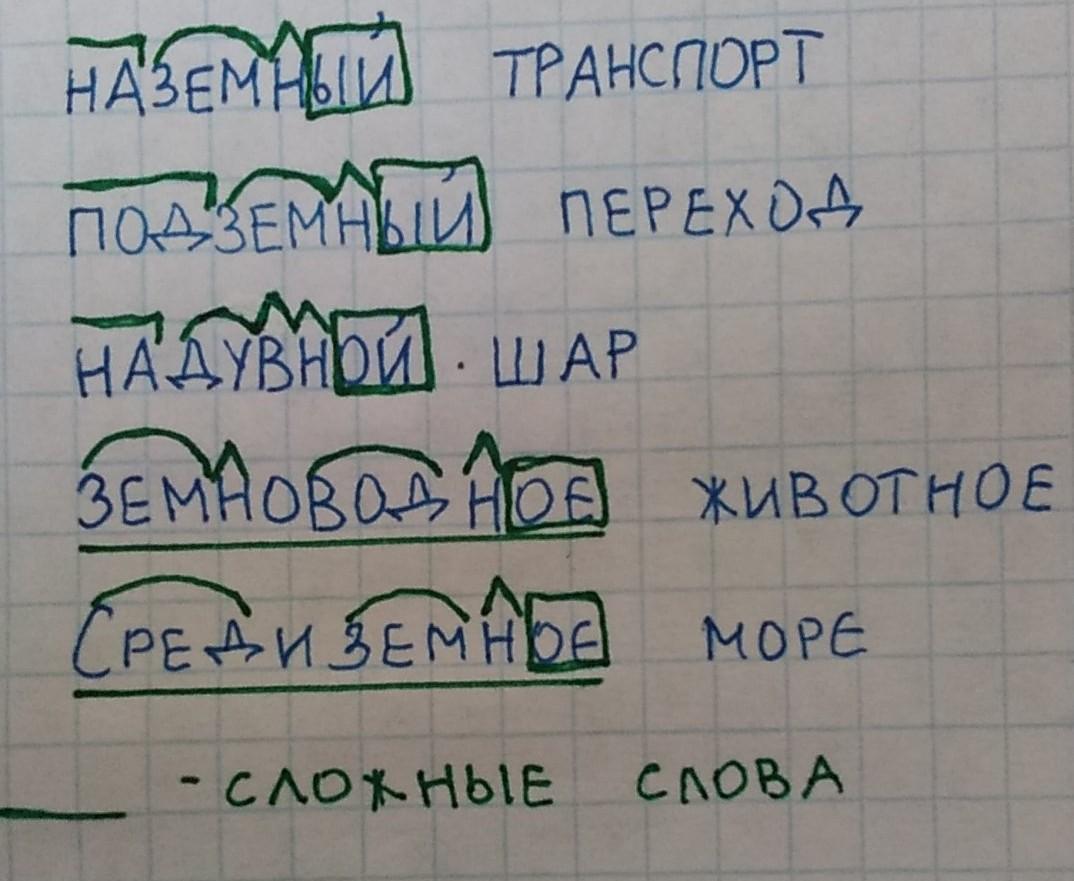 НАЗЕМНЫЙ ТРАНСПОРТ
ПОДЗЕМНЫЙ ПЕРЕХОД
НАДУВНОЙ ШАР
ЗЕМНОВОДНОЕ ЖИВОТНОЕ
СРЕДИЗЕМНОЕ МОРЕ
- СЛОЖНЫЕ СЛОВА